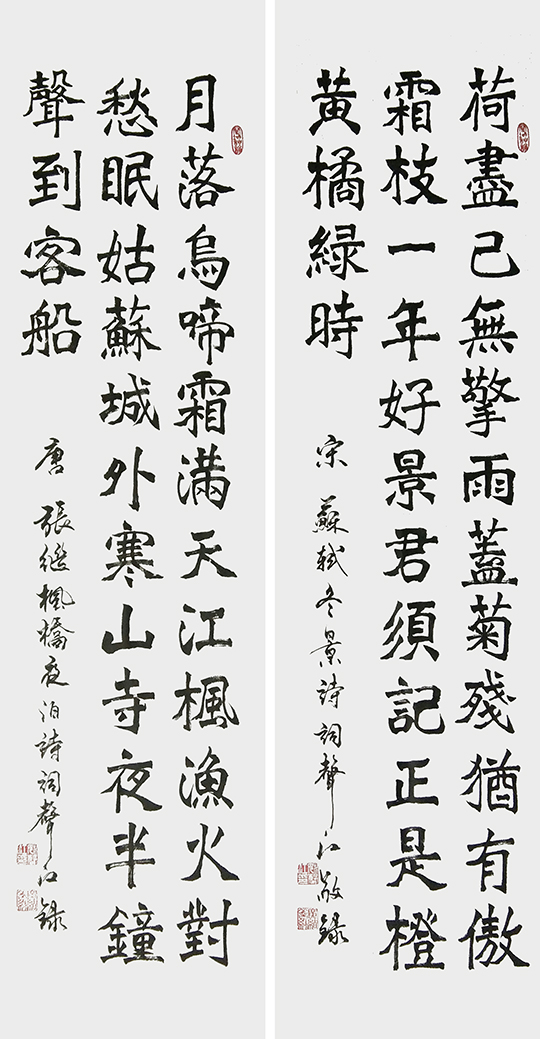 荷盡已無擎雨蓋菊殘猶有傲
霜枝一年好景君須記正是橙
黃橘綠時
宋蘇軾冬景詩詞聲江敬録
月落烏啼霜滿天江楓漁火對
愁眠姑蘇城外寒山寺夜半鐘
聲到客船
唐張繼楓橋夜泊詩詞聲江録